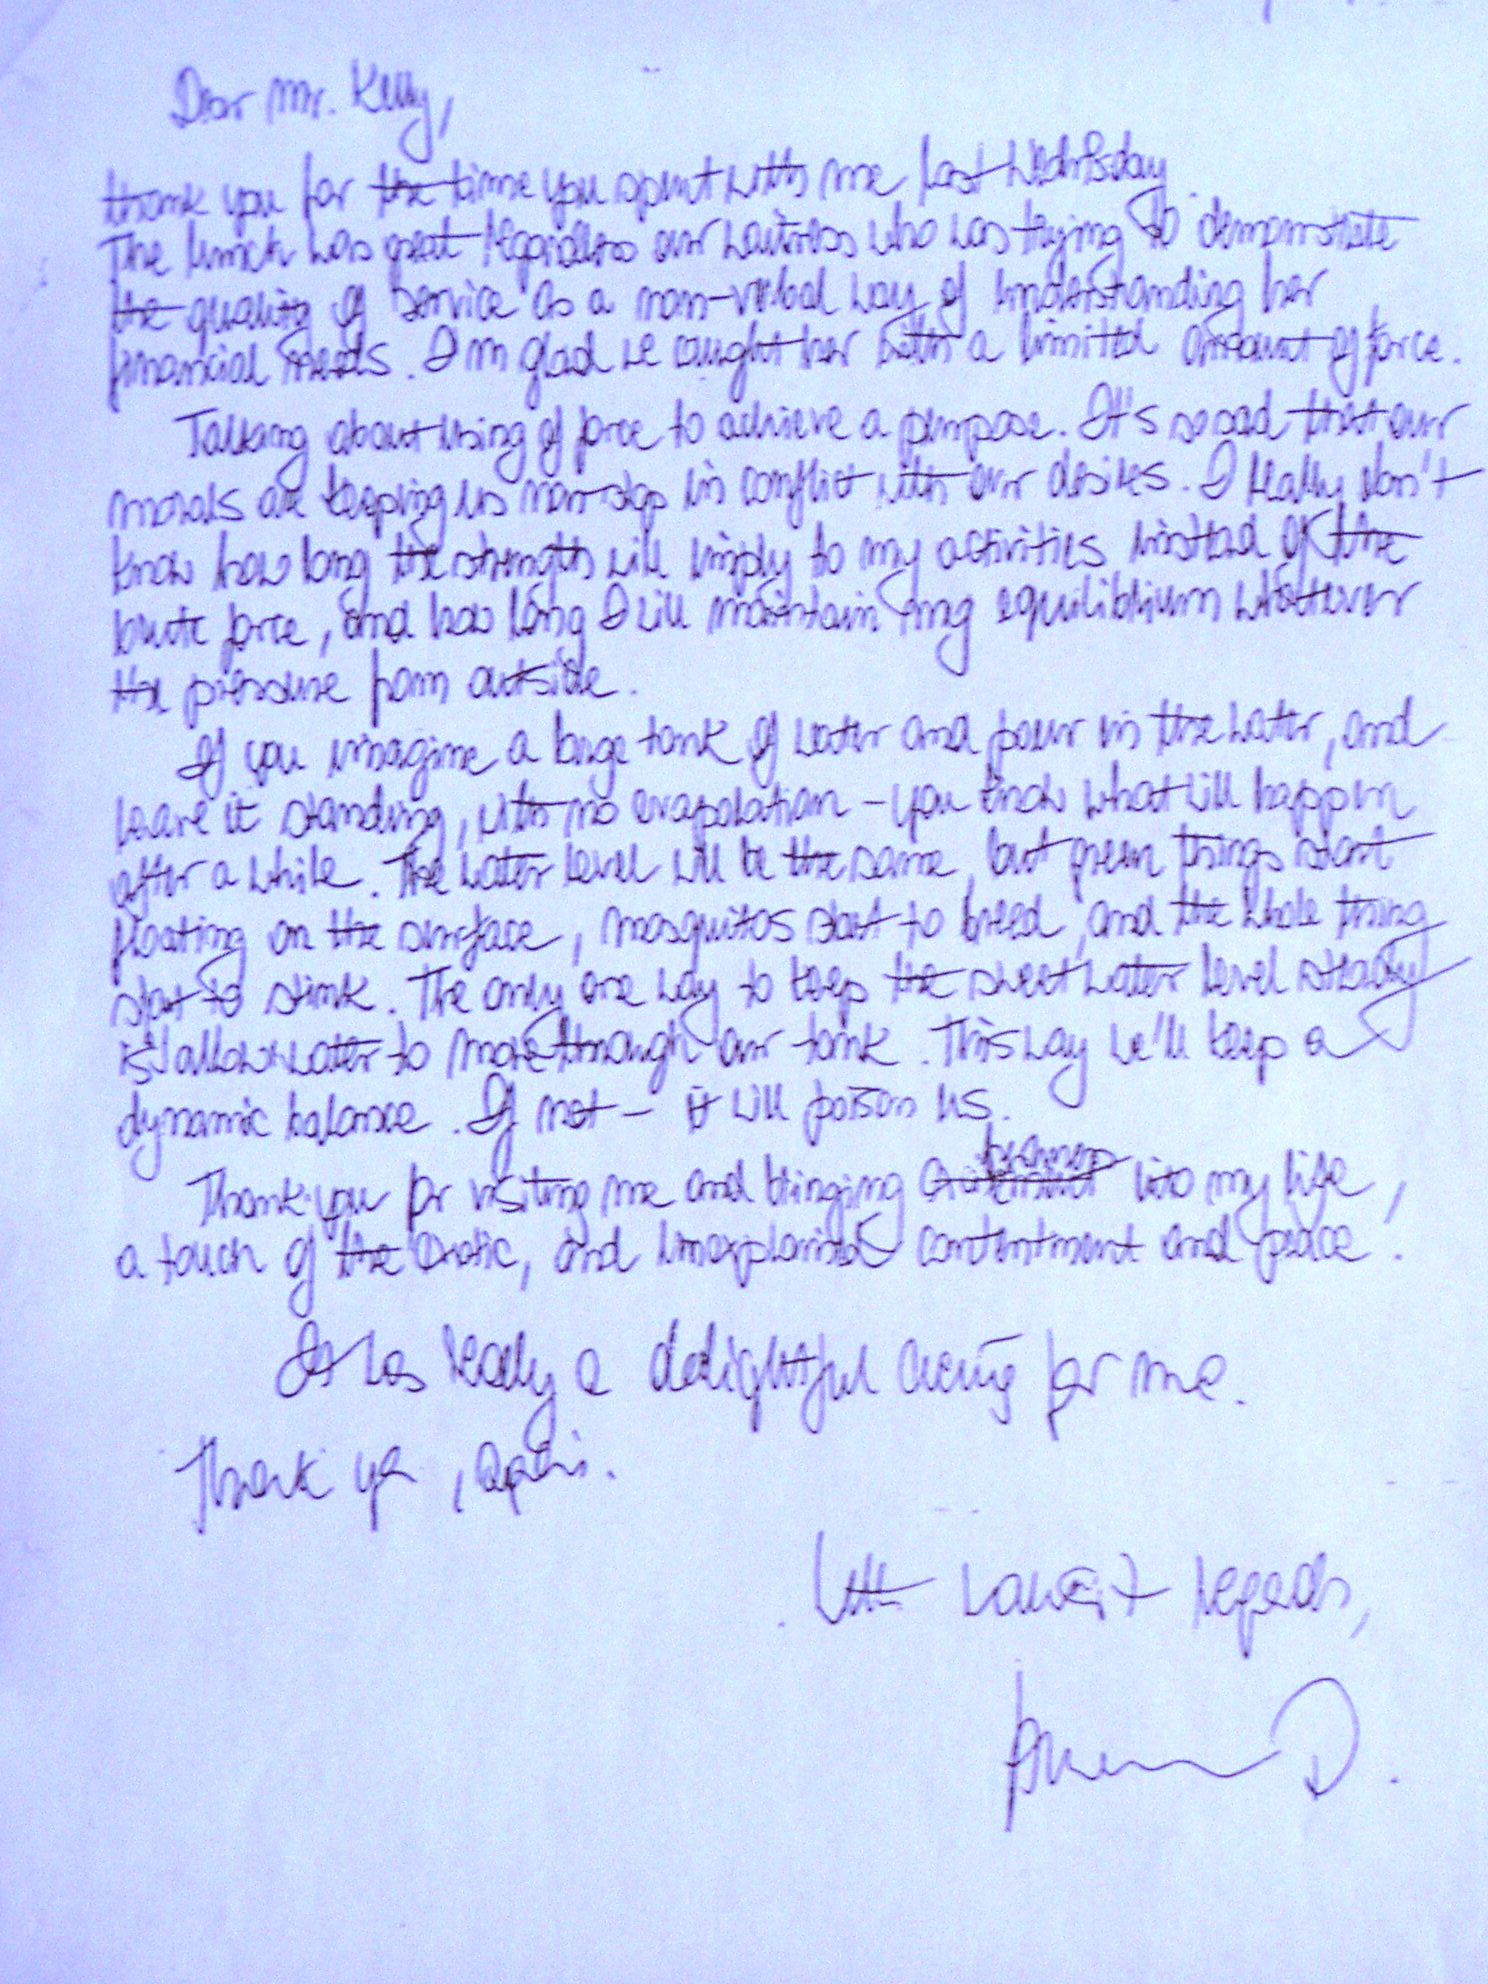 Dear Mr. Kelly,
thank you for the time you spent with me last Wednesday.
The lunch was great regardless our waitress who was trying to demonstrate
the quality of service as a non-verbal way of understanding her
financial needs. I'm glad we caught her with a limited amount of force.
Talking about using of force to achieve a purpose. It's so sad that our
morals are keeping us non-stop in conflict with our desires. I really don't
know how long the strength will imply to my activities instead of the
brute force, and how long I will maintain my equilibrium whatever
the pressure from outside.
If you imagine a large tank of water and pour in the water, and
leave it standing, with no evaporation – you know what will happen
after a while. The water level will be the same, but green things start
floating on the surface, mosquitos start to breed, and the whole thing
start to stink. The only one way to keep the sweet water level steady
is allow water to move through our tank. This way we'll keep a
dynamic balance. If not – it will poison us.
Thank you for visiting me and bringing into my life,
a touch of the exotic, and contentment and peace.
It was really a delightful for me.
Thank you, again.
With regards,
D.